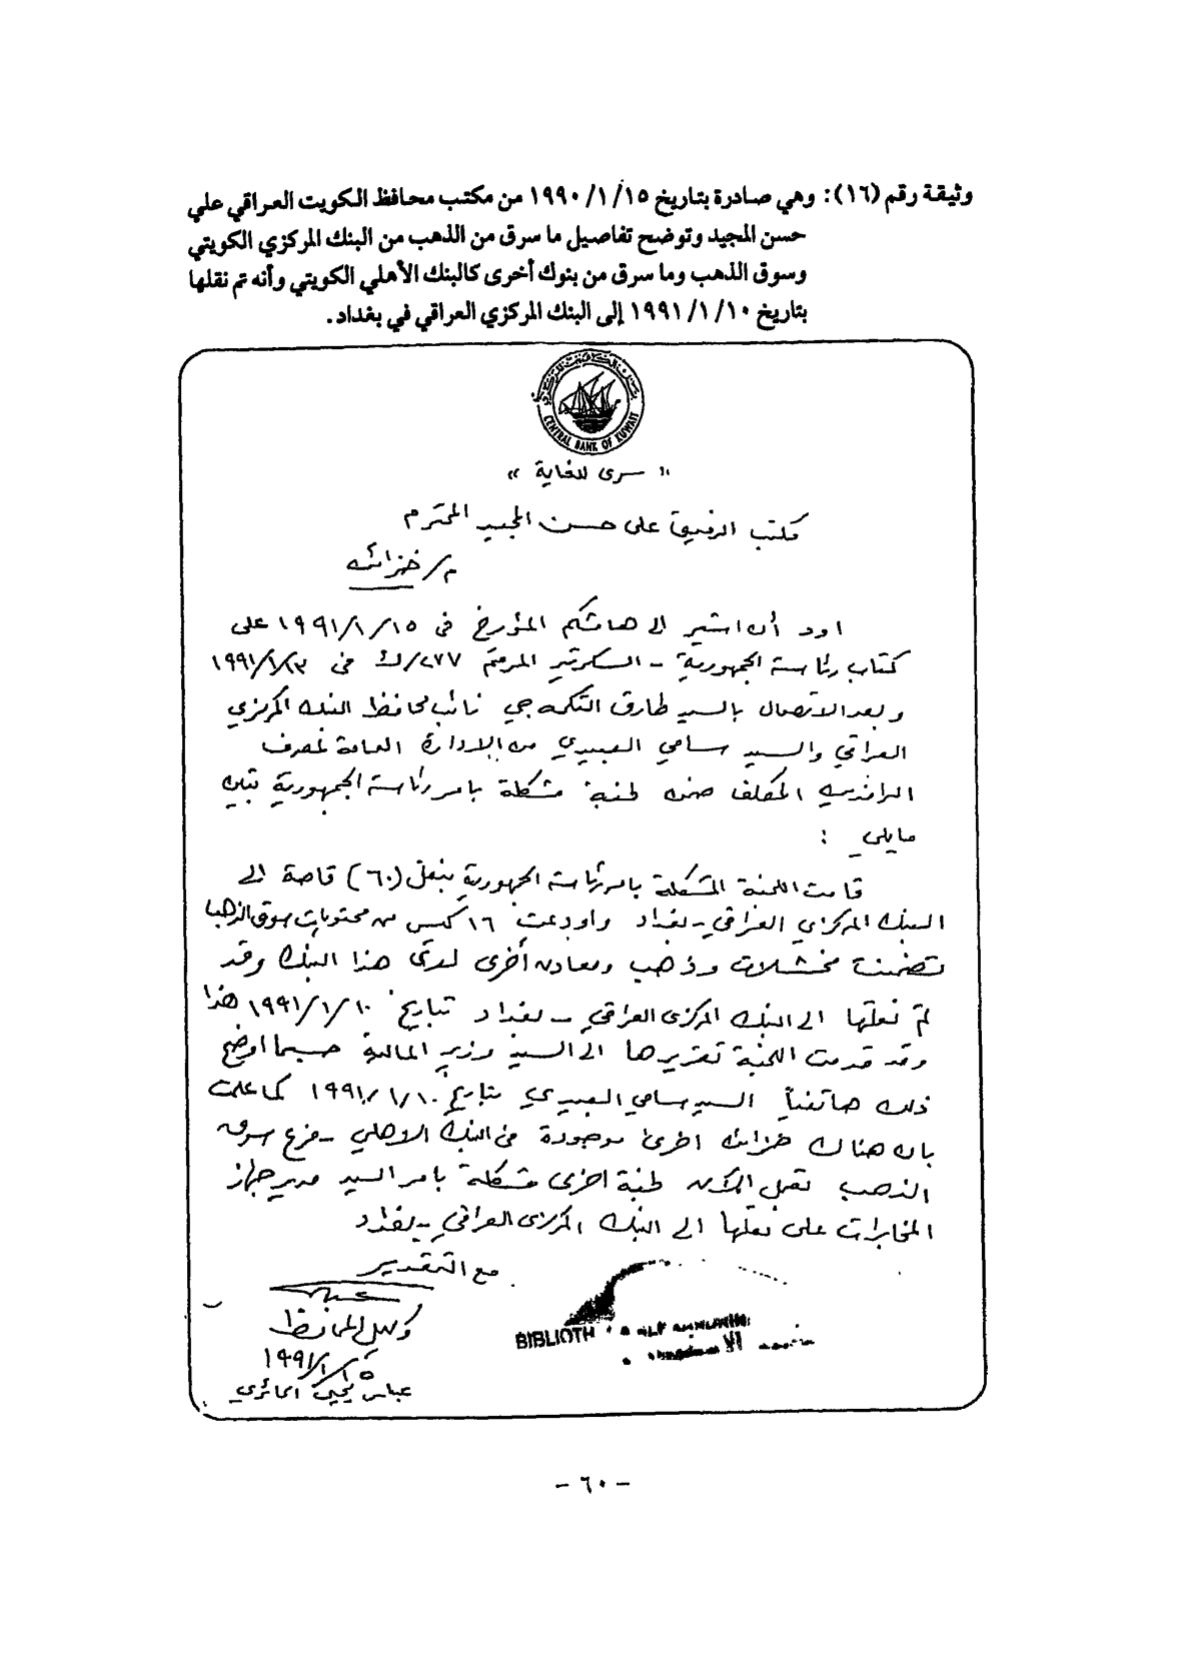 وثيقة رقم (١٦): وهي صادرة بتاريخ ١٩٩٠/١/١٥ من مكتب محافظ الكويت العراقي علي
حسن المجيد وتوضح تفاصيل ما سرق من الذهب من البنك المركزي الكويتي
وسوق الذهب وما سرق من بنوك أخرى كالبنك الأهلي الكويتي وأنه تم نقلها
بتاريخ ١٩٩١/١/١٠ إلى البنك المركزي العراقي في بغداد.
CENTRAL BANK OF KUWAIT
« سرى للغاية »
مكتب الرفيق على حسن المجيد المحترم
م/ خزائن
اود أن اشير الى هامشكم المؤرخ فى ١٩٩١/١/١٥ على
كتاب رئاسة الجمهورية - السكرتير المرقم ٢٧٧/ك فى
وبعد الاتصال بالسيد طارق التكمه جي نائب محافظ البنك المركزي
العراقي والسيد سامي العبيدي من الادارة العامة لمصرف
الرافدين المكلف ضمن لجنة مشكلة بامر رئاسة الجمهورية تبين
مايلي :
قامت اللجنة المشكلة بامر رئاسة الجمهورية بنقل (٦٠) قاصة الى
البنك المركزي العراقي - بغداد واودعت ١٦ كيس من محتويات سوق الذهب
تضمنت مخشلات وذهب ومعادن أخرى لدى هذا البنك وقد
تم نقلها الى البنك المركزى العراقي - بغداد بتاريخ ١٩٩١/١/١٠ هذا
وقد قدمت اللجنة تقريرها الى السيد وزير المالية حسبما اوضح
ذلك هاتفياً السيد سامي العبيدي بتاريخ ١٩٩١/١/١٠ كما علمت
بان هناك خزائن اخرى موجودة فى البنك الاهلي - فرع سوق
الذهب تعمل الآن لجنة اخرى مشكلة بامر السيد مدير جهاز
المخابرات على نقلها الى البنك المركزى العراقي - بغداد
مع التقدير
وكيل المحافظ
١٩٩١/١/١٥
عباس يحيى الحائري
BIBLIOTH
- ٦٠ -